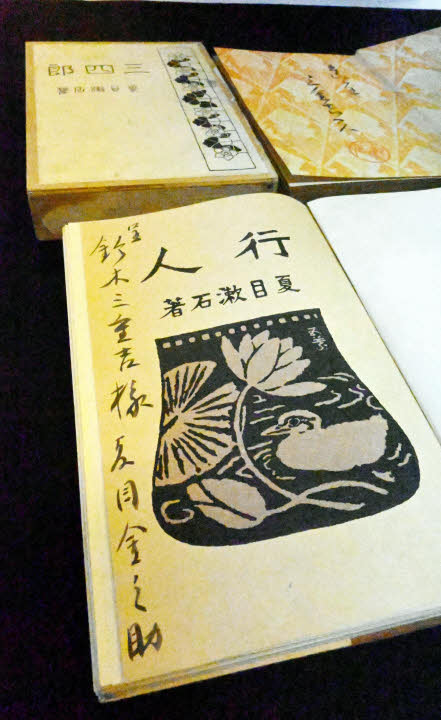 三四郎
夏目漱石著
行人
夏目漱石著
五葉
呈
鈴木三重吉様 夏目金之助